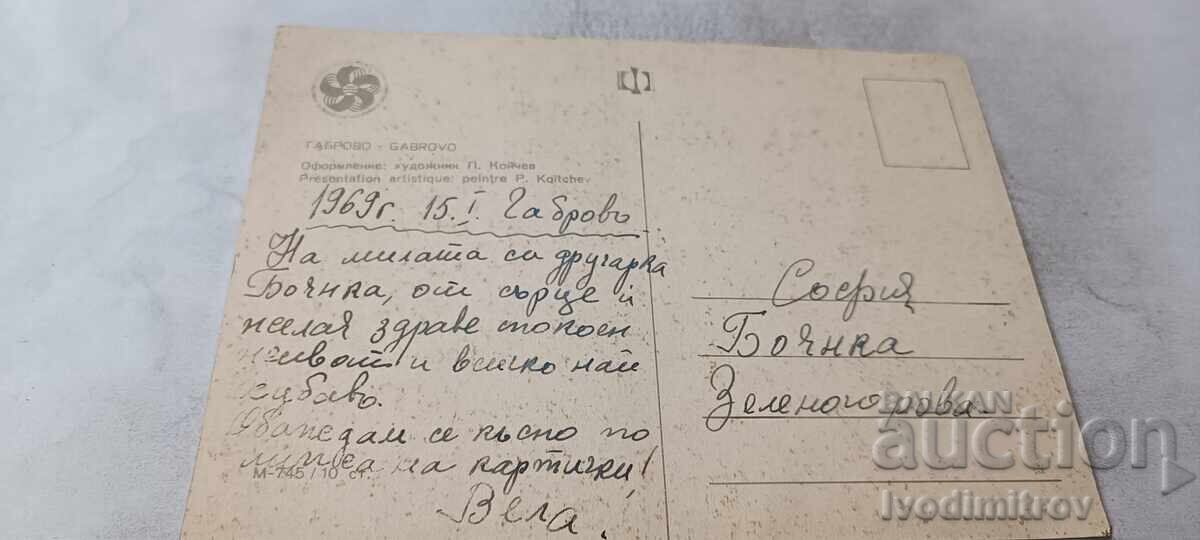 ГАБРОВО - GABROVO
Оформление: художник П. Койчев
Présentation artistique: peintre P. Koïtchev
1969г. 15.I. Габрово
На милата си другарка
Бочнка, от сърце и
желая здраве спокоен
живот и всичко най
хубаво.
Обаждам се късно по
липса на картички!
Вела.
М-745 / 10 ст.
София
Бочнка
Зеленогорова.
BALKAN
auction
Ivodimitrov